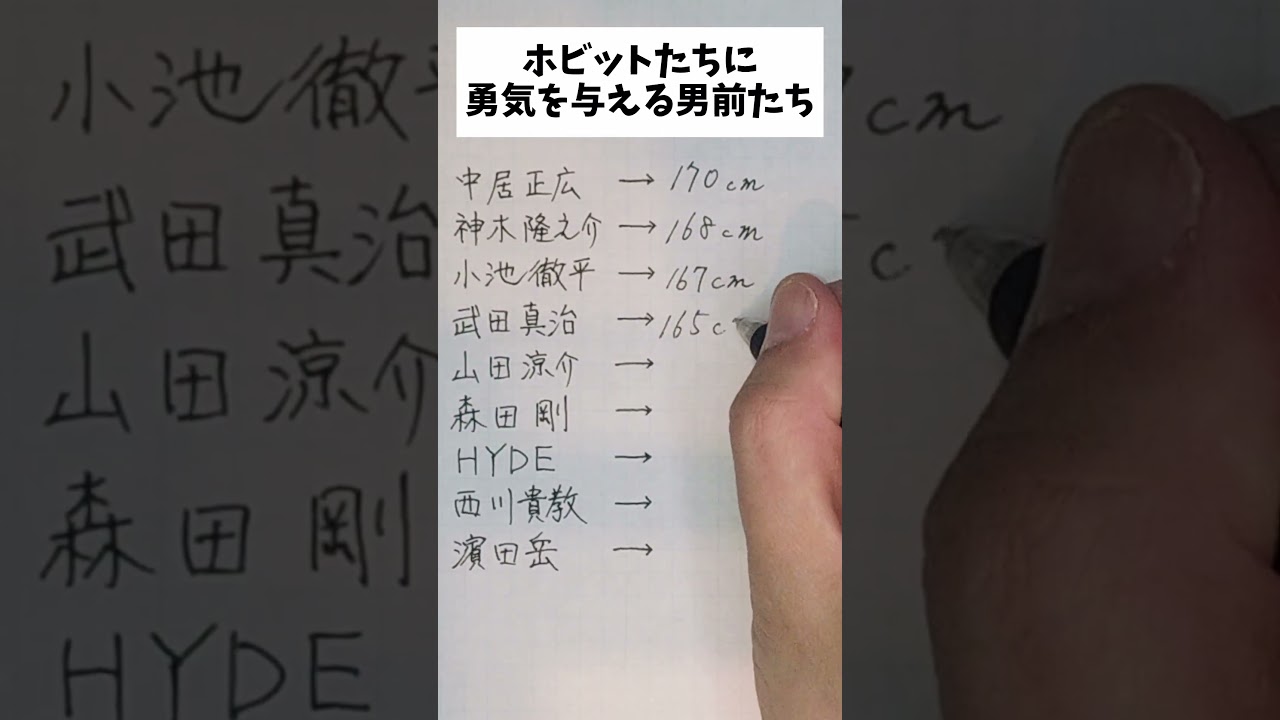 ホビットたちに
勇気を与える男前たち
中居正広 → 170cm
神木隆之介 → 168cm
小池徹平 → 167cm
武田真治 → 165c
山田涼介 →
森田剛 →
HYDE →
西川貴教 →
濱田岳 →